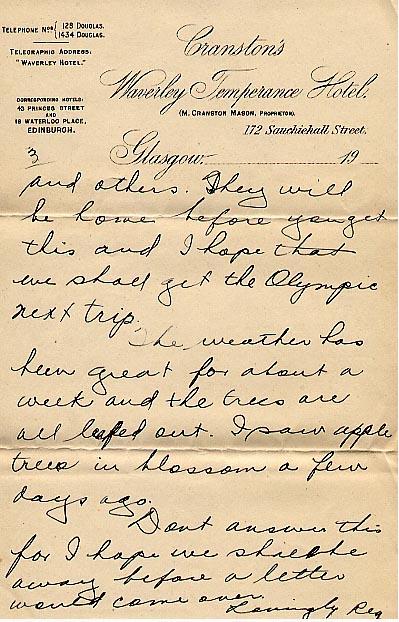 TELEPHONE Nos { 128 DOUGLAS.
1434 DOUGLAS.
TELEGRAPHIC ADDRESS:
"WAVERLEY HOTEL."
CORRESPONDING HOTELS:
43 PRINCES STREET
AND
18 WATERLOO PLACE,
EDINBURGH.
Cranston's
Waverley Temperance Hotel.
(M. CRANSTON MASON, PROPRIETOR).
172 Sauchiehall Street.
Glasgow, 19
3
and others. They will
be home before you get
this and I hope that
we shall get the Olympic
next trip.
The weather has
been great for about a
week and the trees are
all leafed out. I saw apple
trees in blossom a few
days ago.
Dont answer this
for I hope we shall be
away before a letter
would come over.
Lovingly Reg